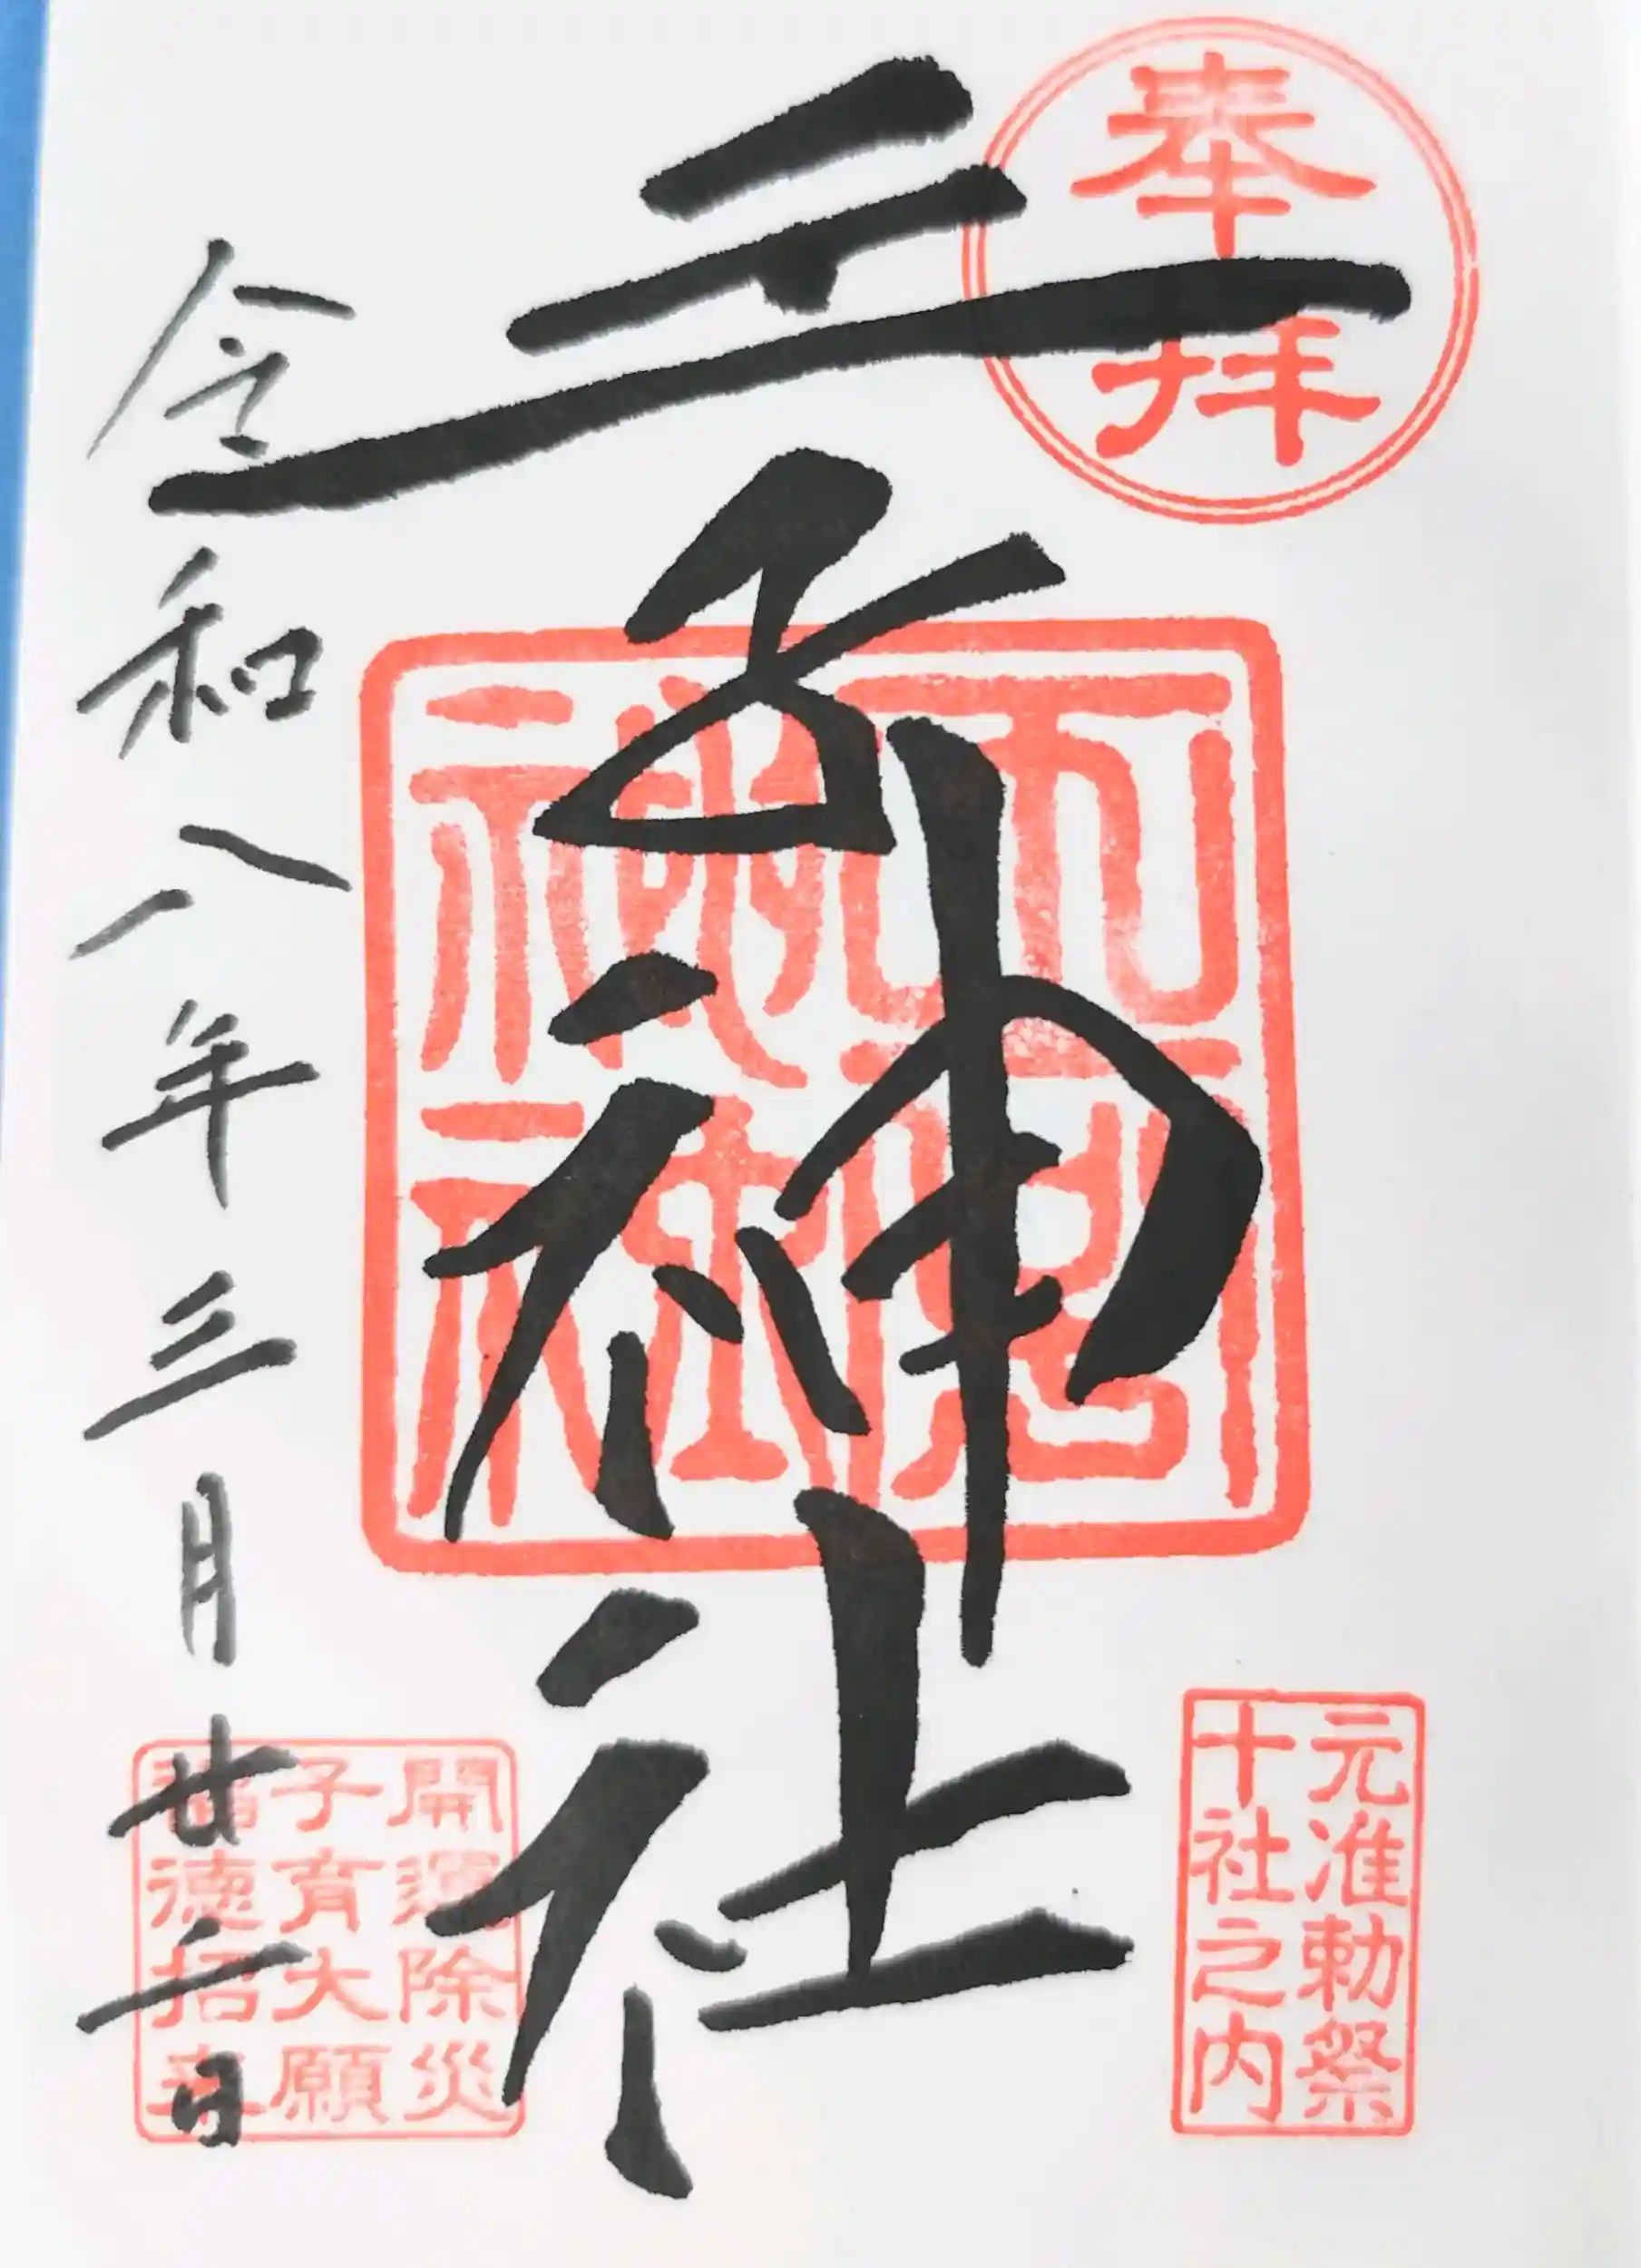 奉拝
王子神社
元准勅祭
十社之内
開運除災
子育大願
福徳招
令和八年三月廿二日